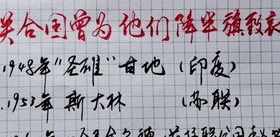 关合国曾为他们降半旗致哀
1948年“圣雄”甘地（印度）
1953年 斯大林（苏联）